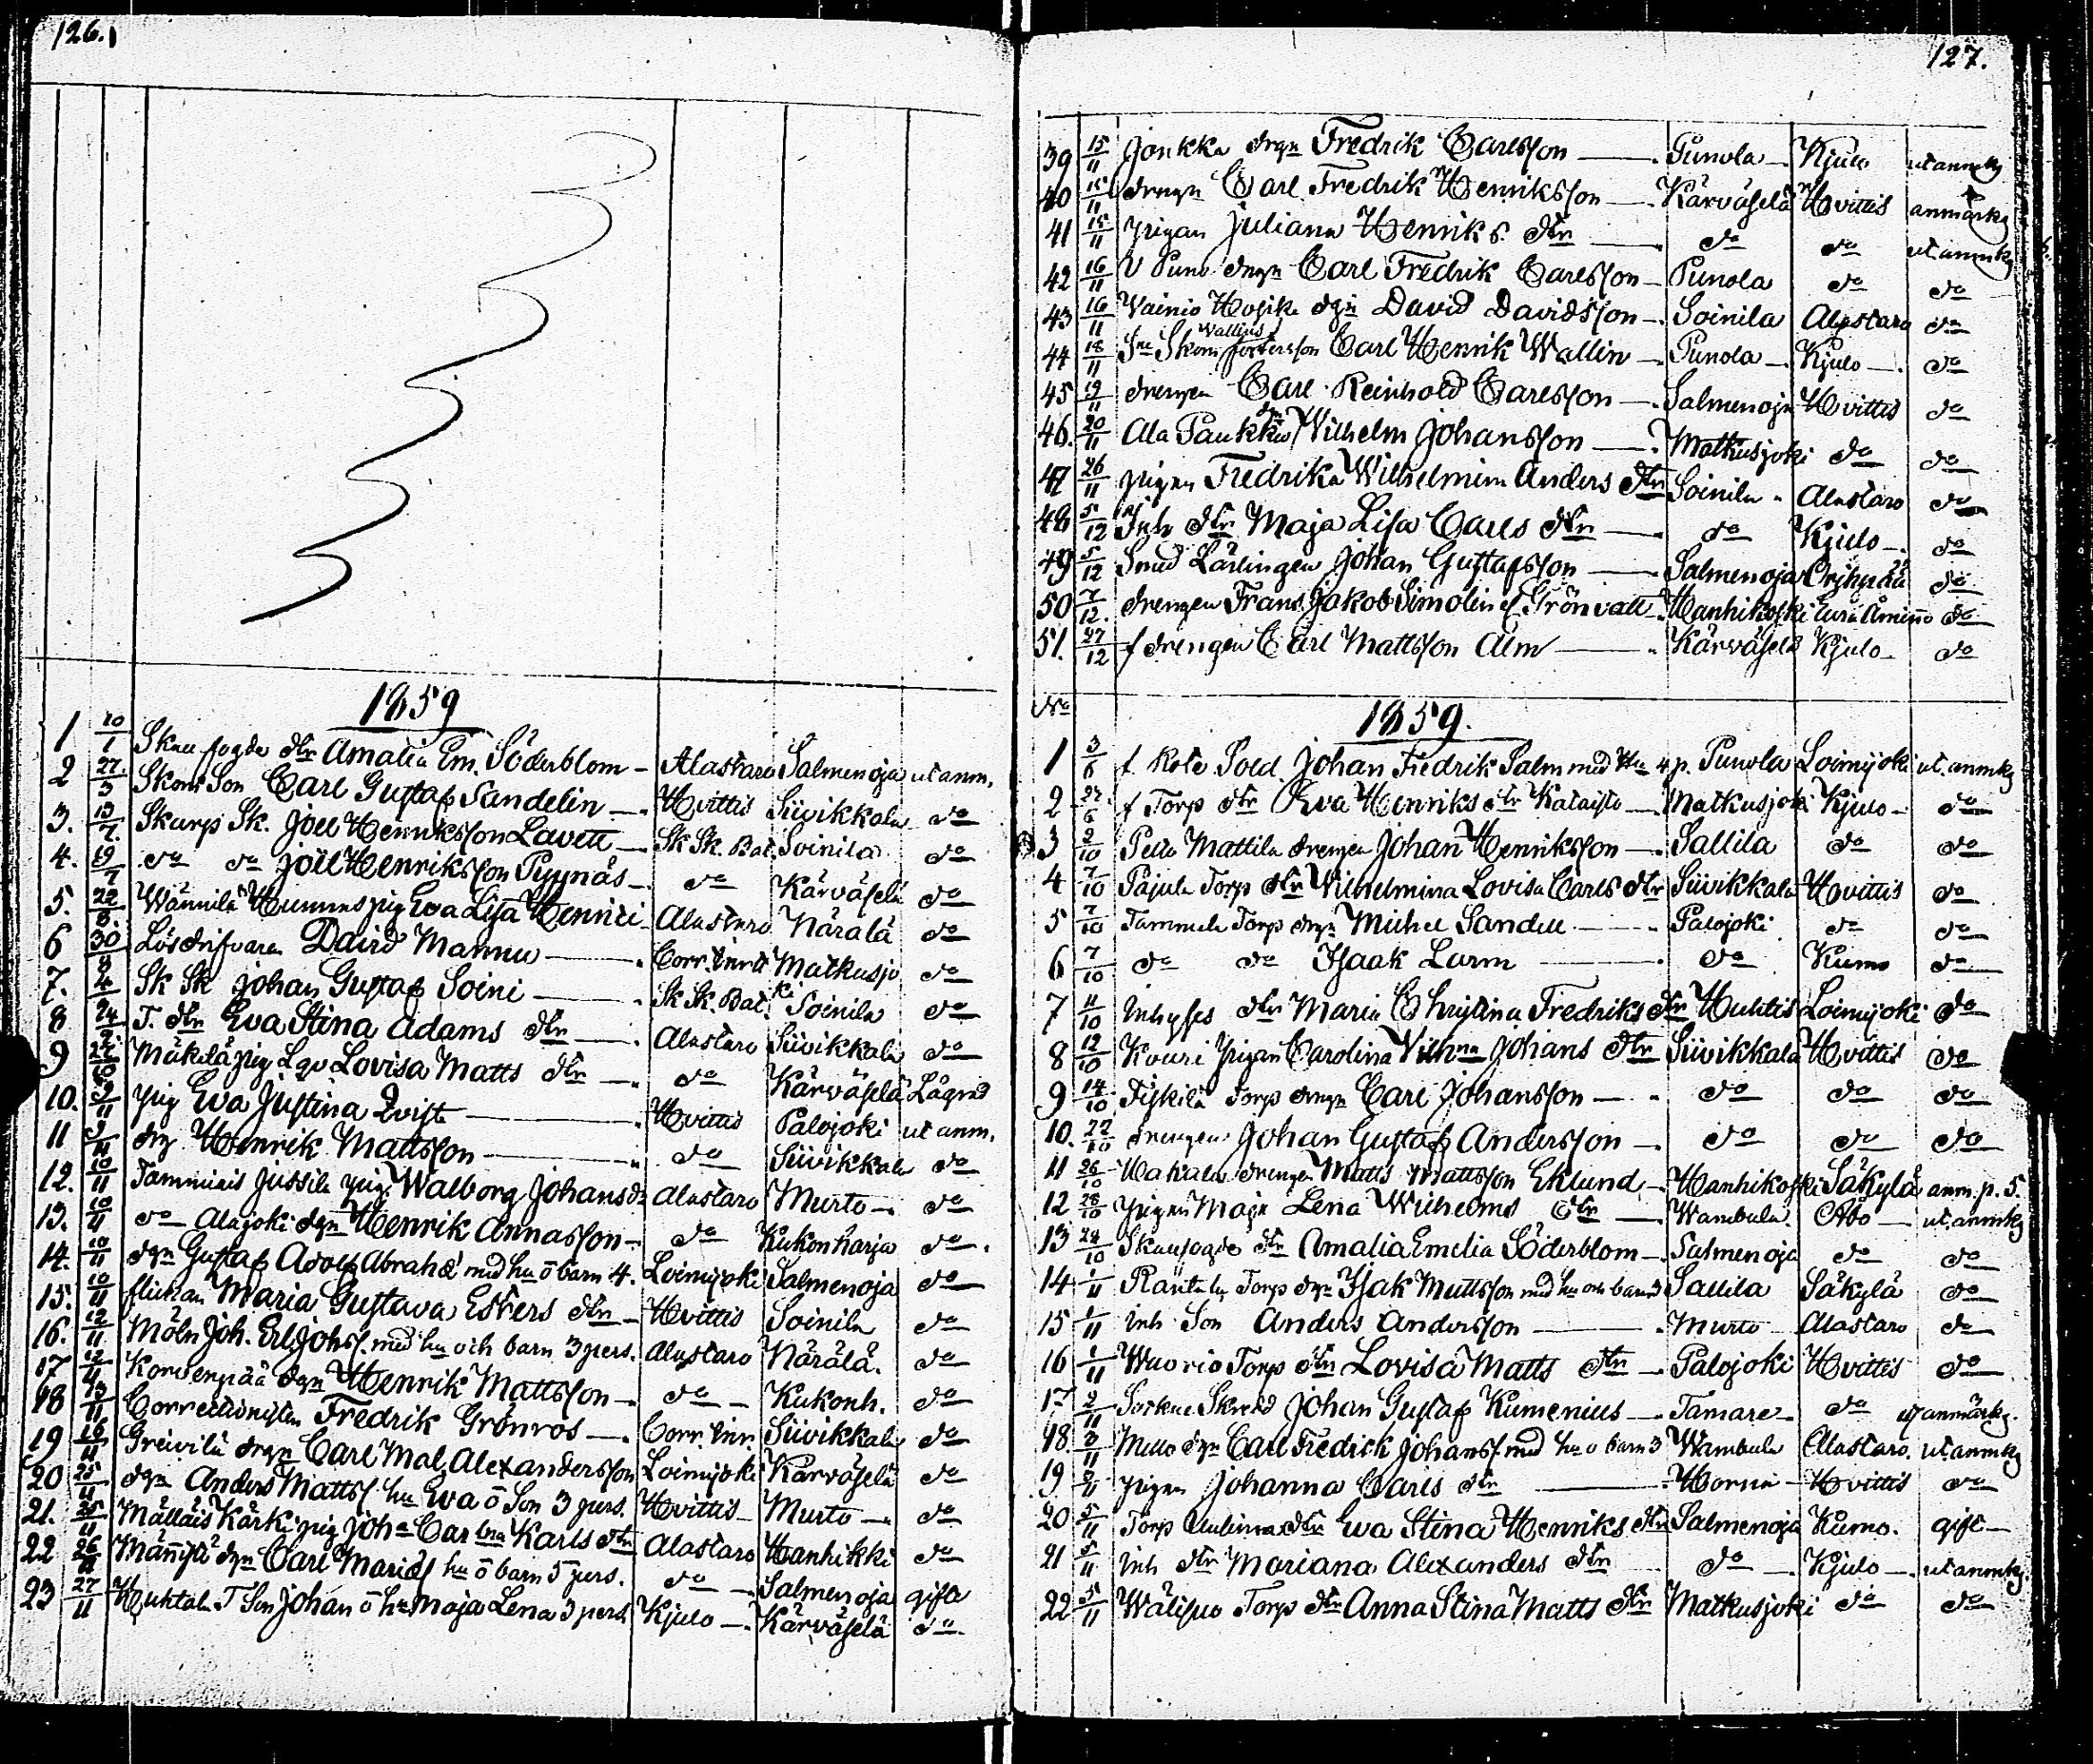 126.
1859
1 20/1 Skau fogde dtr Amalia Em. Söderblom - Alastaro Salmenoja ut anm.
2 27/3 Skom Son Carl Gustaf Sandelin - Hvittis Siivikkala do
3. 13/7 Skarp Sk. Joel Henriksson Lavett - Sk Sk. Bat. Soinila do
4. 19/7 do do Joel Henriksson Pyynäs - do Kärväselä do
5. 22/8 Wännilä Hummns pig Eva Lisa Henrici Alastaro Närälä do
6 30/8 Lösdrifvaren David Mannu - Corr. Inrtt Matkusjoki do
7. 4/9 Sk Sk Johan Gustaf Soini - Sk Sk. Bat. Soinila do
8 24/9 T. dtr Eva Stina Adams dtr - Alastaro Siivikkala do
9 Mäkelä pig Lqv Lovisa Matts dtr - do Kärväselä Lägrad
10. 9/11 pig Eva Justina Qvist - Hvittis Palojoki ut anm.
11 9/11 drg Henrik Mattsson - do Siivikkala do
12. 10/11 Tammiais Jussila pig. Walborg Johansdr Alastaro Murto - do
13. 10/11 do Alajoki dgn Henrik Annasson - do Kukonharja do.
14. 10/11 dgn Gustaf Adolf Abrahas med hu o barn 4. Loimijoki Salmenoja do
15. 10/11 flickan Maria Gustava Esters dtr - Hvittis Soinila do
16. 12/11 Möln Joh. Erl. Johs. med hu och barn 3 pers. Alastaro Närälä. do
17 12/11 Korvenpää dgn Henrik Mattsson - do - Kukonh. do
18 13/11 Correctionisten Fredrik Grönros - Corr. Inr. Siivikkala do
19 16/11 Greivilä drgn Carl Mal. Alexandersson Loimijoki Kärväselä do
20 25/11 dgn Anders Matts. hu Eva o Son 3 pers. Hvittis - Murto - do
21. 25/11 Mälläis Kärki pig Joha Carlna Karls dtr Alastaro Hanhikki do
22 26/11 Männistö dgn Carl Marias hu o barn 5 pers. do - Salmenoja gifta
23 27/11 Huhtala T Son Johan o hu Maja Lena 3 pers. Kjulo - Kärväselä do
127.
39 15/11 Jonkka drgn Fredrik Carlsson - Punola - Kjulo ut anmkg
40 15/11 drengn Carl Fredrik Henriksson - Kärväselä Hvittis anmärkg
41 15/11 pigan Juliana Henriks dtr - do do ut anmkg
42 16/11 V Puno drgn Carl Fredrik Carlsson - Punola do do
43 16/11 Wainio Hvsik. dgn David Davidsson - Soinila Alastaro do
Wallins
44 18/11 Skom fostersson Carl Henrik Wallin - Punola - Kjulo - do
45 19/11 drengen Carl Reinhold Carlsson - Salmenoja Hvittis do
46. 20/11 Ala Paukku dgn Wilhelm Johansson - Matkusjoki do do
47 26/11 pigan Fredrika Wilhelmina Anders dtr Soinila - Alastaro do
48 5/12 Inh dtr Maja Lisa Carls dtr - do Kjulo - do
49 5/12 Smed Lärlingen Johan Gustafsson - Salmenoja Orihpää do
50 7/12. drengen Frans Jakob Simolin el. Grönvall - Hanhikoski Eura Åminne do
51. 27/12 f drengen Carl Mattsson Alm - Kärväselä Kjulo - do
No 1859.
1 3/6 f. Rote Sold. Johan Fredrik Palm med Hu 4 p. Punola Loimijoki ut. anmkg
2 27/6 f Torp dtr Eva Henriks dtr Kataisto - Matkusjoki Kjulo - do
3 2/10 Pello Mattila drengen Johan Henriksson - Sallila do do
4 7/10 Pajula Torp dtr Wilhelmina Lovisa Carls dtr Siivikkala Hvittis do
5 7/10 Tammela Torp drgn Michel Sandell - Palojoki do do
6 7/10 do do Isaak Larm - do Kumo do
7 11/10 Inhyses dtr Maria Christina Fredriks dtr Huhtis Loimijoki do
8 12/10 Kouri pigan Carolina Vilhna Johans dtr Siivikkala Hvittis do
9 14/10 Fiskilä Torp drgn Carl Johansson - do do do
10. 22/10 drengen Johan Gustaf Andersson - do do do
11 26/10 Hakala drengen Matts Mattsson Eklund - Hanhikoski Säkylä anm. p. 5.
12 28/10 pigan Maja Lena Wilhelms dtr - Wambula Åbo - ut anmkg
13 28/10 Skaufogde dtr Amalia Emelia Söderblom - Salmenoja do do
14 1/11 Rantala Torp dgn Isak Mattsson med hu och barn 3 Sallila Säkylä do
15 1/11 Inh Son Anders Andersson - Murto Alastaro do
16 1/11 Wuorio Torp dtr Lovisa Matts dtr - Palojoki Hvittis do
17 2/11 Skredd Johan Gustaf Kumenius - Tamare - do anmärkg.
18. 2/11 Mello dgn Carl Fredrick Johans. med hu o barn 3 Wambula Alastaro. ut. anmkg
19 pigan Johanna Carls dtr - Horna - Hvittis do
20 5/11 Torp Aulinna dtr Eva Stina Henriks dtr Salmenoja Kumo. gift -
21 5/11 Inh dtr Mariana Alexanders dtr do - Kjulo - ut anmkg.
22 5/11 Wälisuo Torp dtr Anna Stina Matts dtr Matkusjoki do do